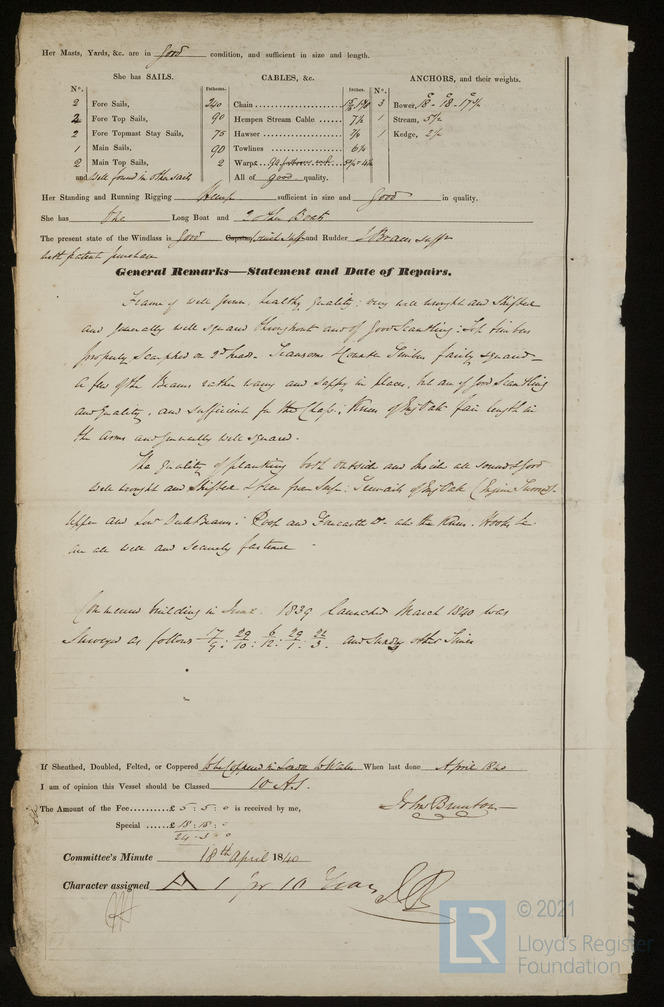 Her Masts, Yards, &c. are in good condition, and sufficient in size and length.
She has SAILS. CABLES, &c. ANCHORS, and their weights.
N°. Fathoms. Inches. N°.
2 Fore Sails, 240 Chain 3 Bower, 18 - 18 - 17½
2 Fore Top Sails, 90 Hempen Stream Cable 7½ 1 Stream,
2 Fore Topmast Stay Sails, 75 Hawser 1 Kedge,
1 Main Sails, 90 Towlines
2 Main Top Sails, 2 Warps
and well found in other sails All of good quality.
Her Standing and Running Rigging Hemp sufficient in size and good in quality.
She has One Long Boat and 2 other Boats
The present state of the Windlass is good and Rudder
with patent purchase
General Remarks—Statement and Date of Repairs.
Frame of well grown, healthy quality: very well wrought and Shifted
and generally well squared throughout and of good Scantling: Top timbers
properly Scarphed on Transoms & Counter Timbers fairly squared —
a few of the Beams rather waney and sappy in places, but are of good Scantling
and quality, and sufficient for the Class.: Knees of Eng Oak fair length in
the arms and generally well squared.
The quality of planking both Outside and Inside all sound & good
well wrought and Shifted & free from Sap: of Eng Oak
Upper and Low Deck Beams: Poop and Forecastle also the Knees. Hooks &c
are all well and securely fastened -
Commenced building in June 1839 launched March 1840 was
Surveyed as follows 17/9: 29/10: 6/12: 29/1: 21/3. and sundry other times
If Sheathed, Doubled, Felted, or Coppered to be Coppered in London to Wales When last done April 1840
I am of opinion this Vessel should be Classed 10 A.1.
The Amount of the Fee £ 5 : 5 : 0 is received by me, John Brunton
Special £ 18 : 18 : 0
24 - 3 - 0
Committee's Minute 18th April 1840
Character assigned A 1 for 10 Years
© 2021
LR
Lloyd's Register
Foundation